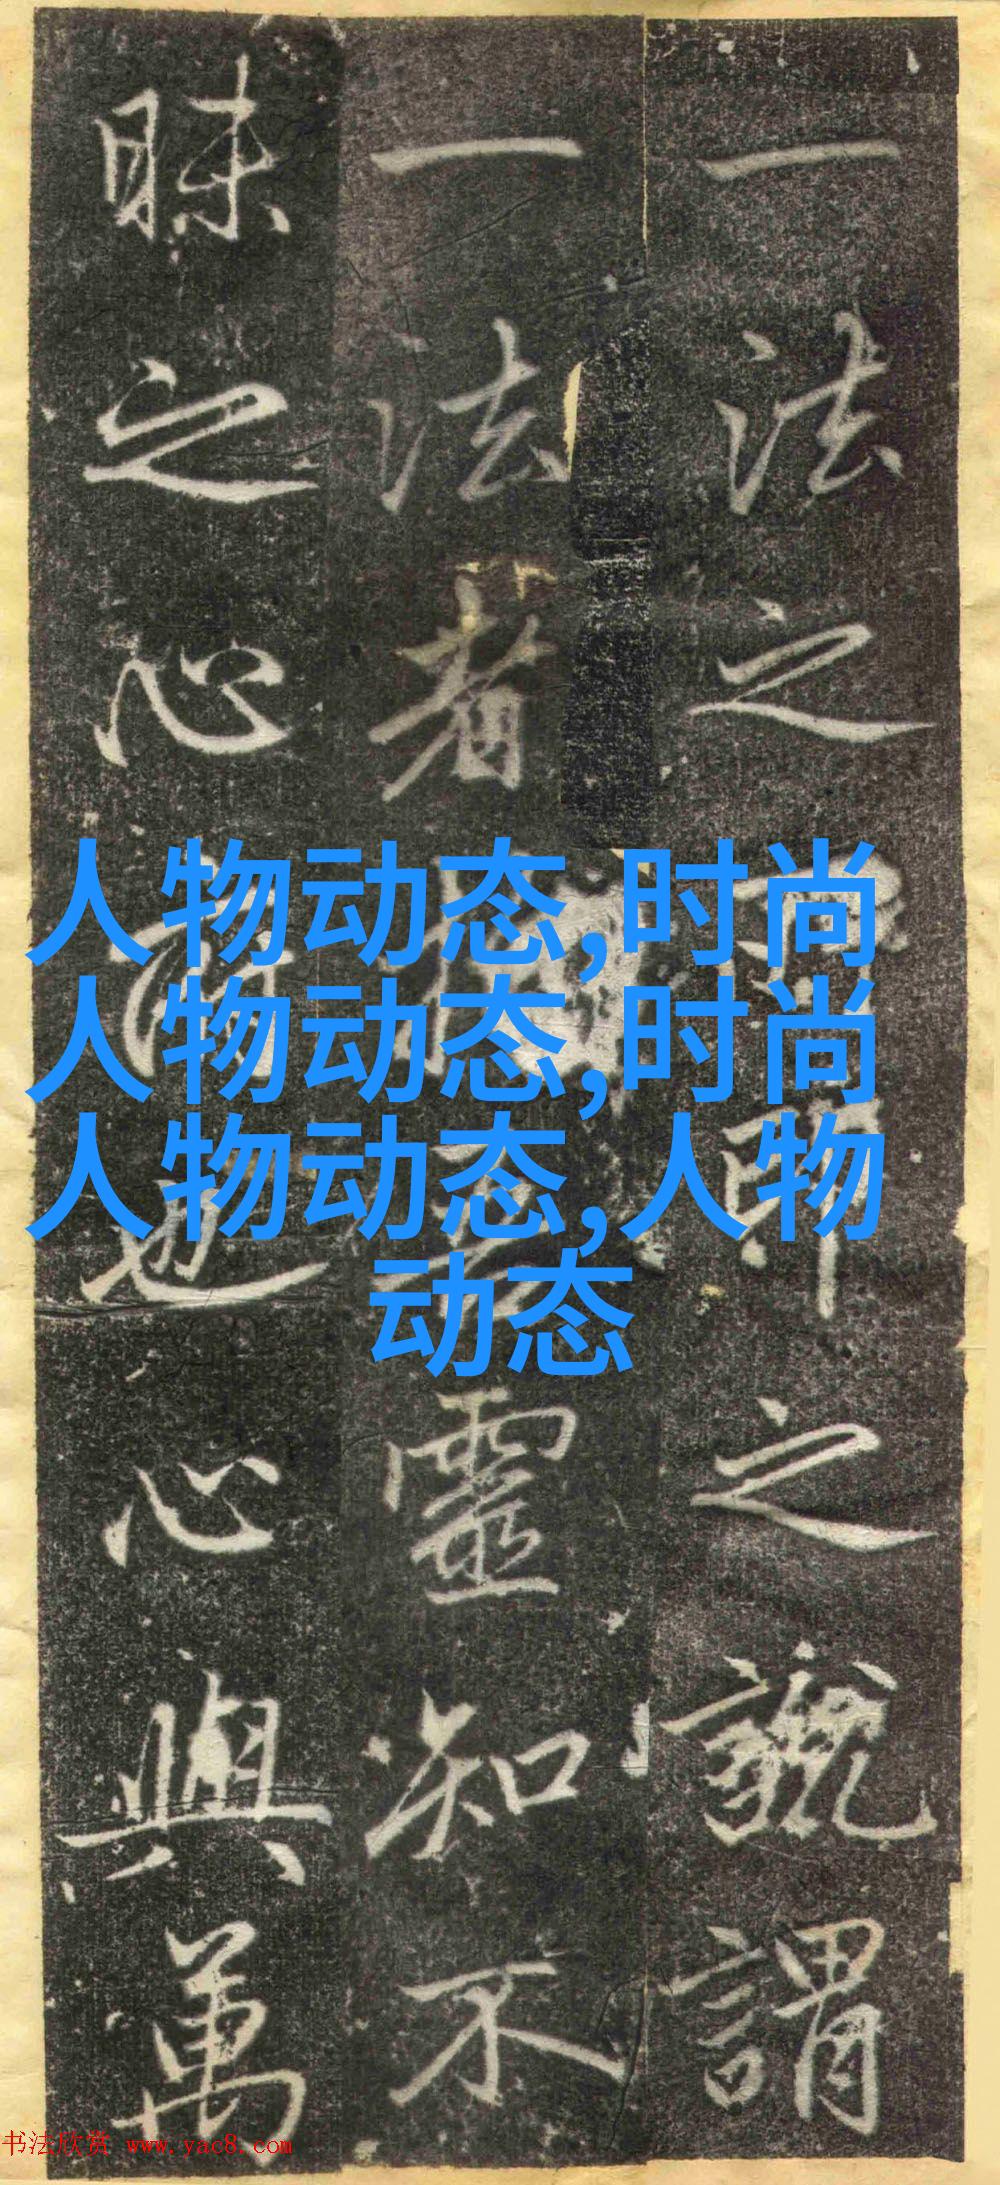 一法之之謂
一法者靈知不
昧之心也心與萬
人物动态,时尚
人物动态,时尚
人物动态,人物
动态
书法欣赏 www.yac8.com